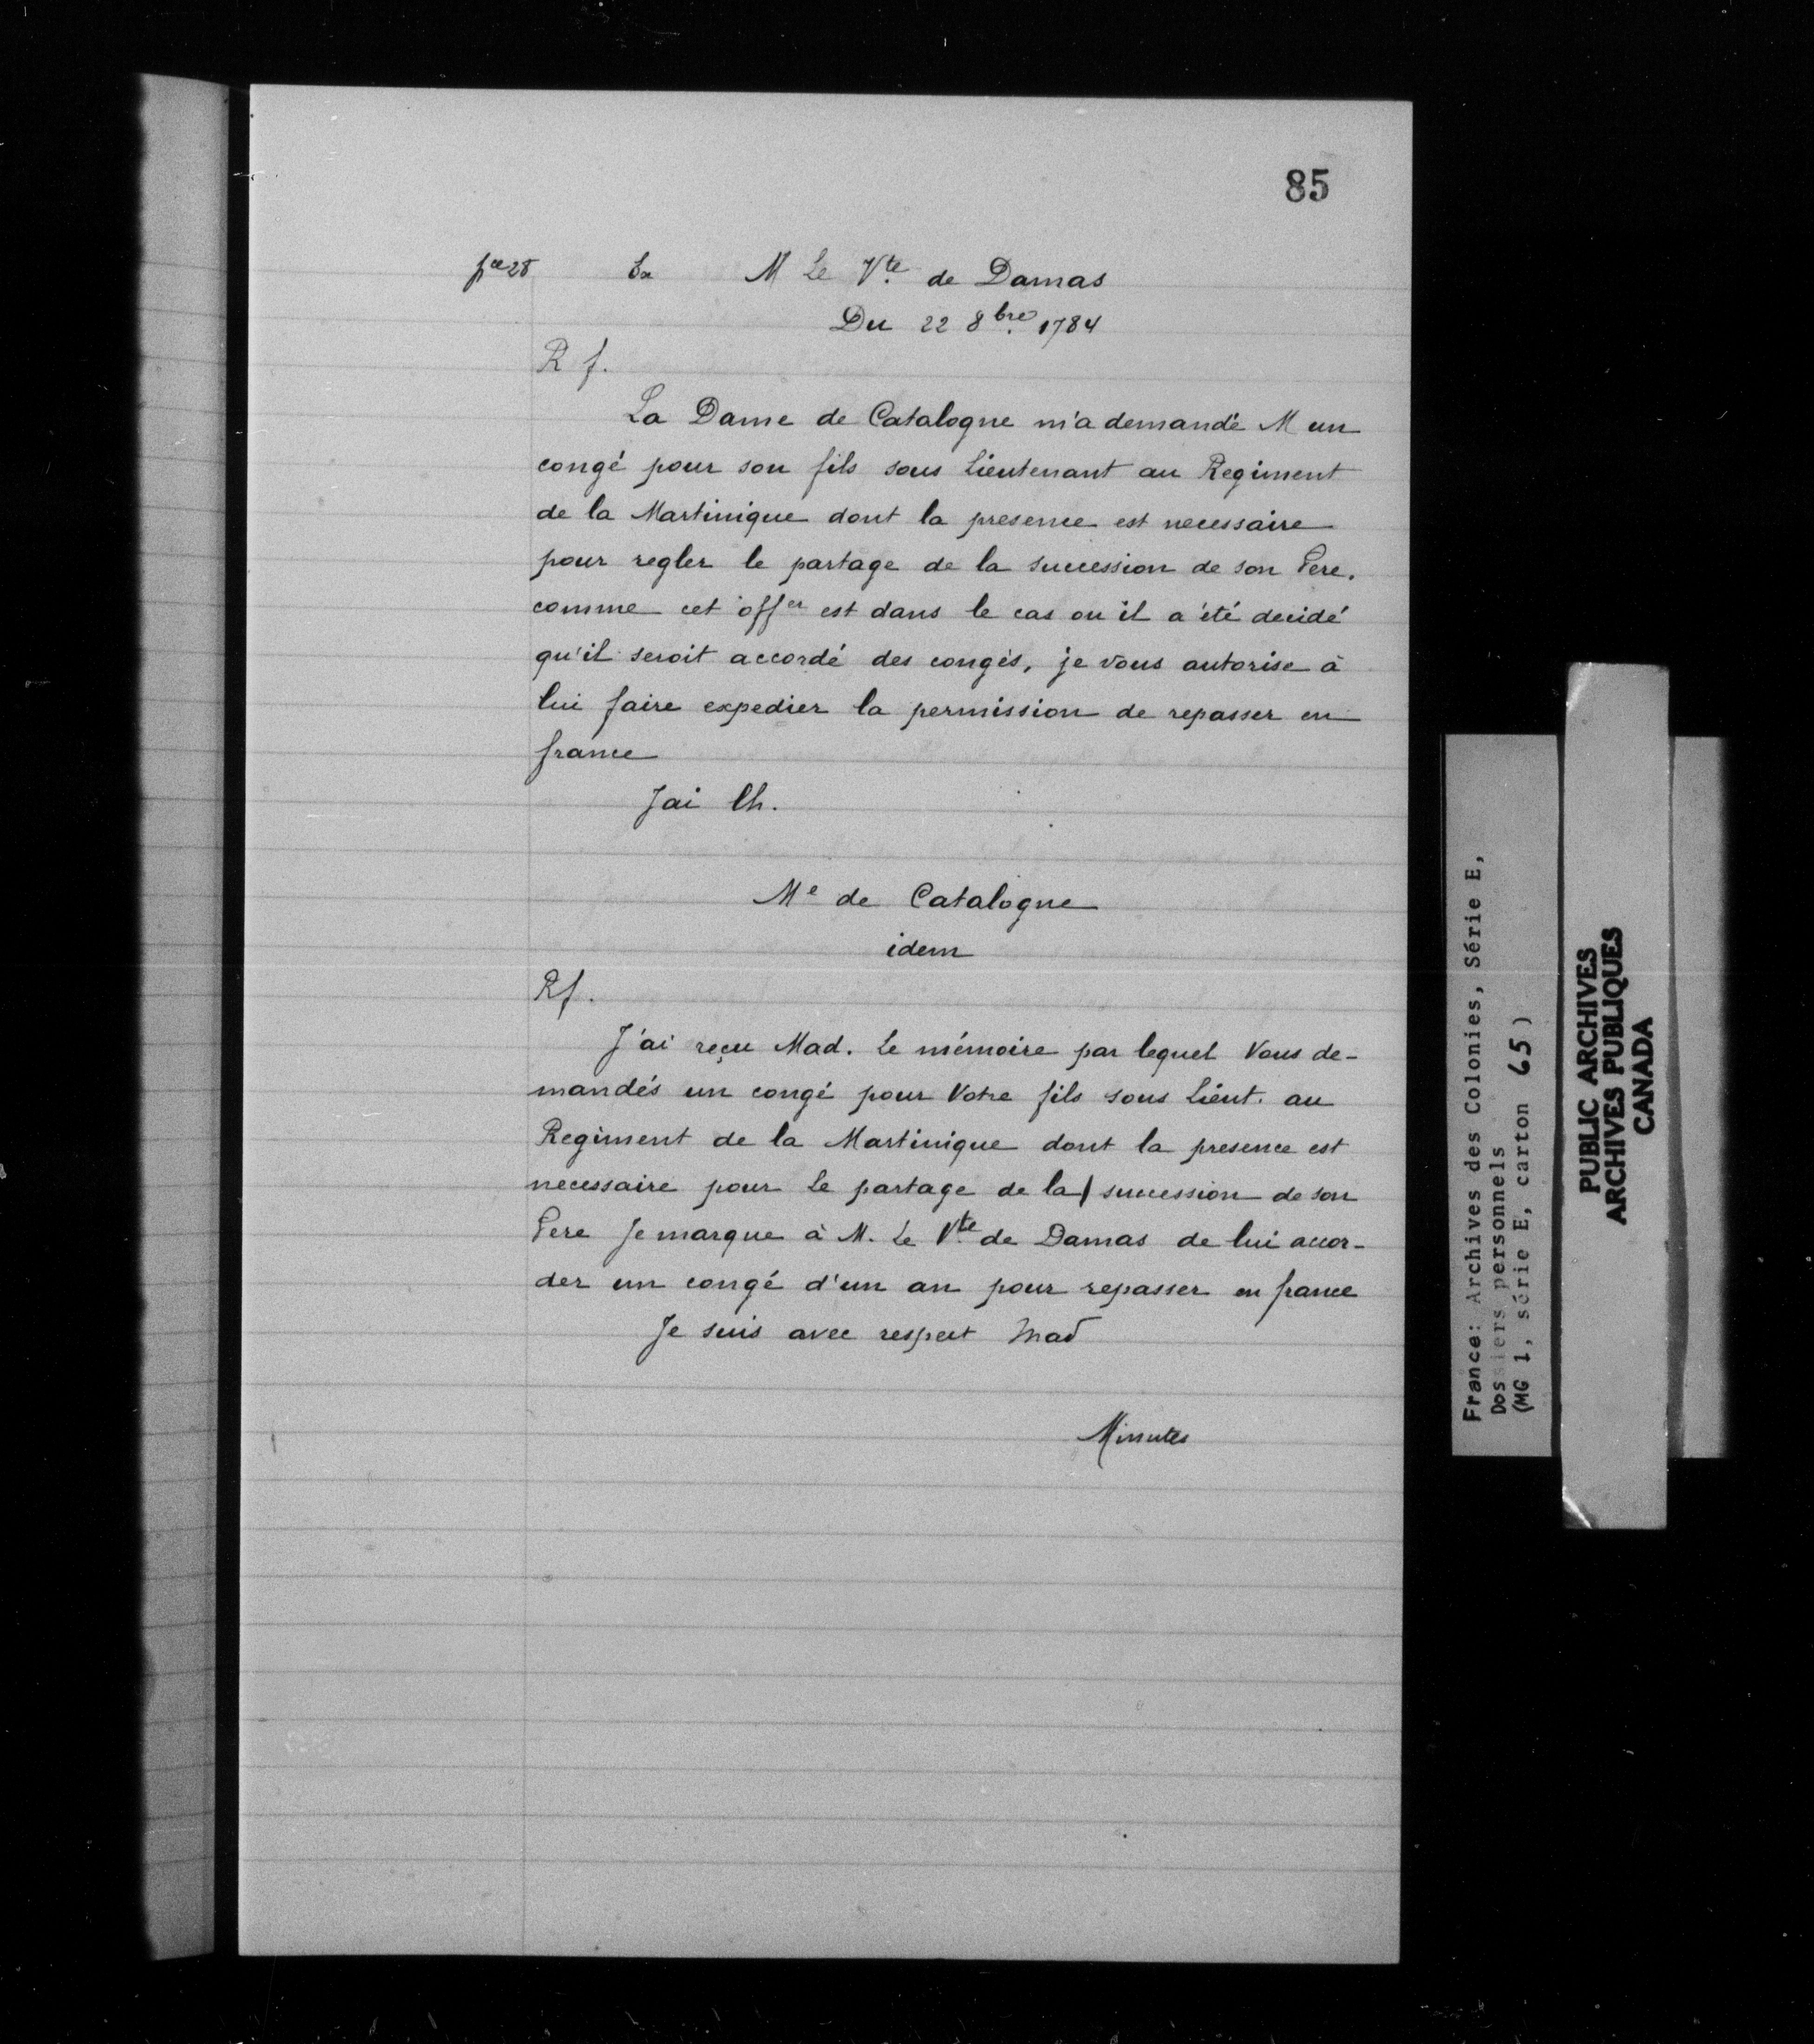 85
pce 28 Ex M Le Vte de Damas
Du 22 8bre 1784
R f.
La Dame de Catalogne m'a demandé M un
congé pour son fils sous Lieutenant au Regiment
de la Martinique dont la presence est necessaire
pour regler le partage de la succession de son Pere.
comme cet offer est dans le cas ou il a été decidé
qu'il seroit accordé des congés, je vous autorise à
lui faire expedier la permission de repasser en
france
J'ai lh.
Me de Catalogne
idem
Rf.
J'ai reçu Mad. Le mémoire par lequel Vous de-
mandés un congé pour Votre fils sous Lieut. au
Regiment de la Martinique dont la presence est
necessaire pour Le partage de la succession de son
Pere Je marque à M. Le Vte de Damas de lui accor-
der un congé d'un an pour repasser en france
Je suis avec respect Mad
Minutes
France: Archives des Colonies, Série E,
Dossiers personnels
(MG 1, série E, carton 65)
PUBLIC ARCHIVES
ARCHIVES PUBLIQUES
CANADA